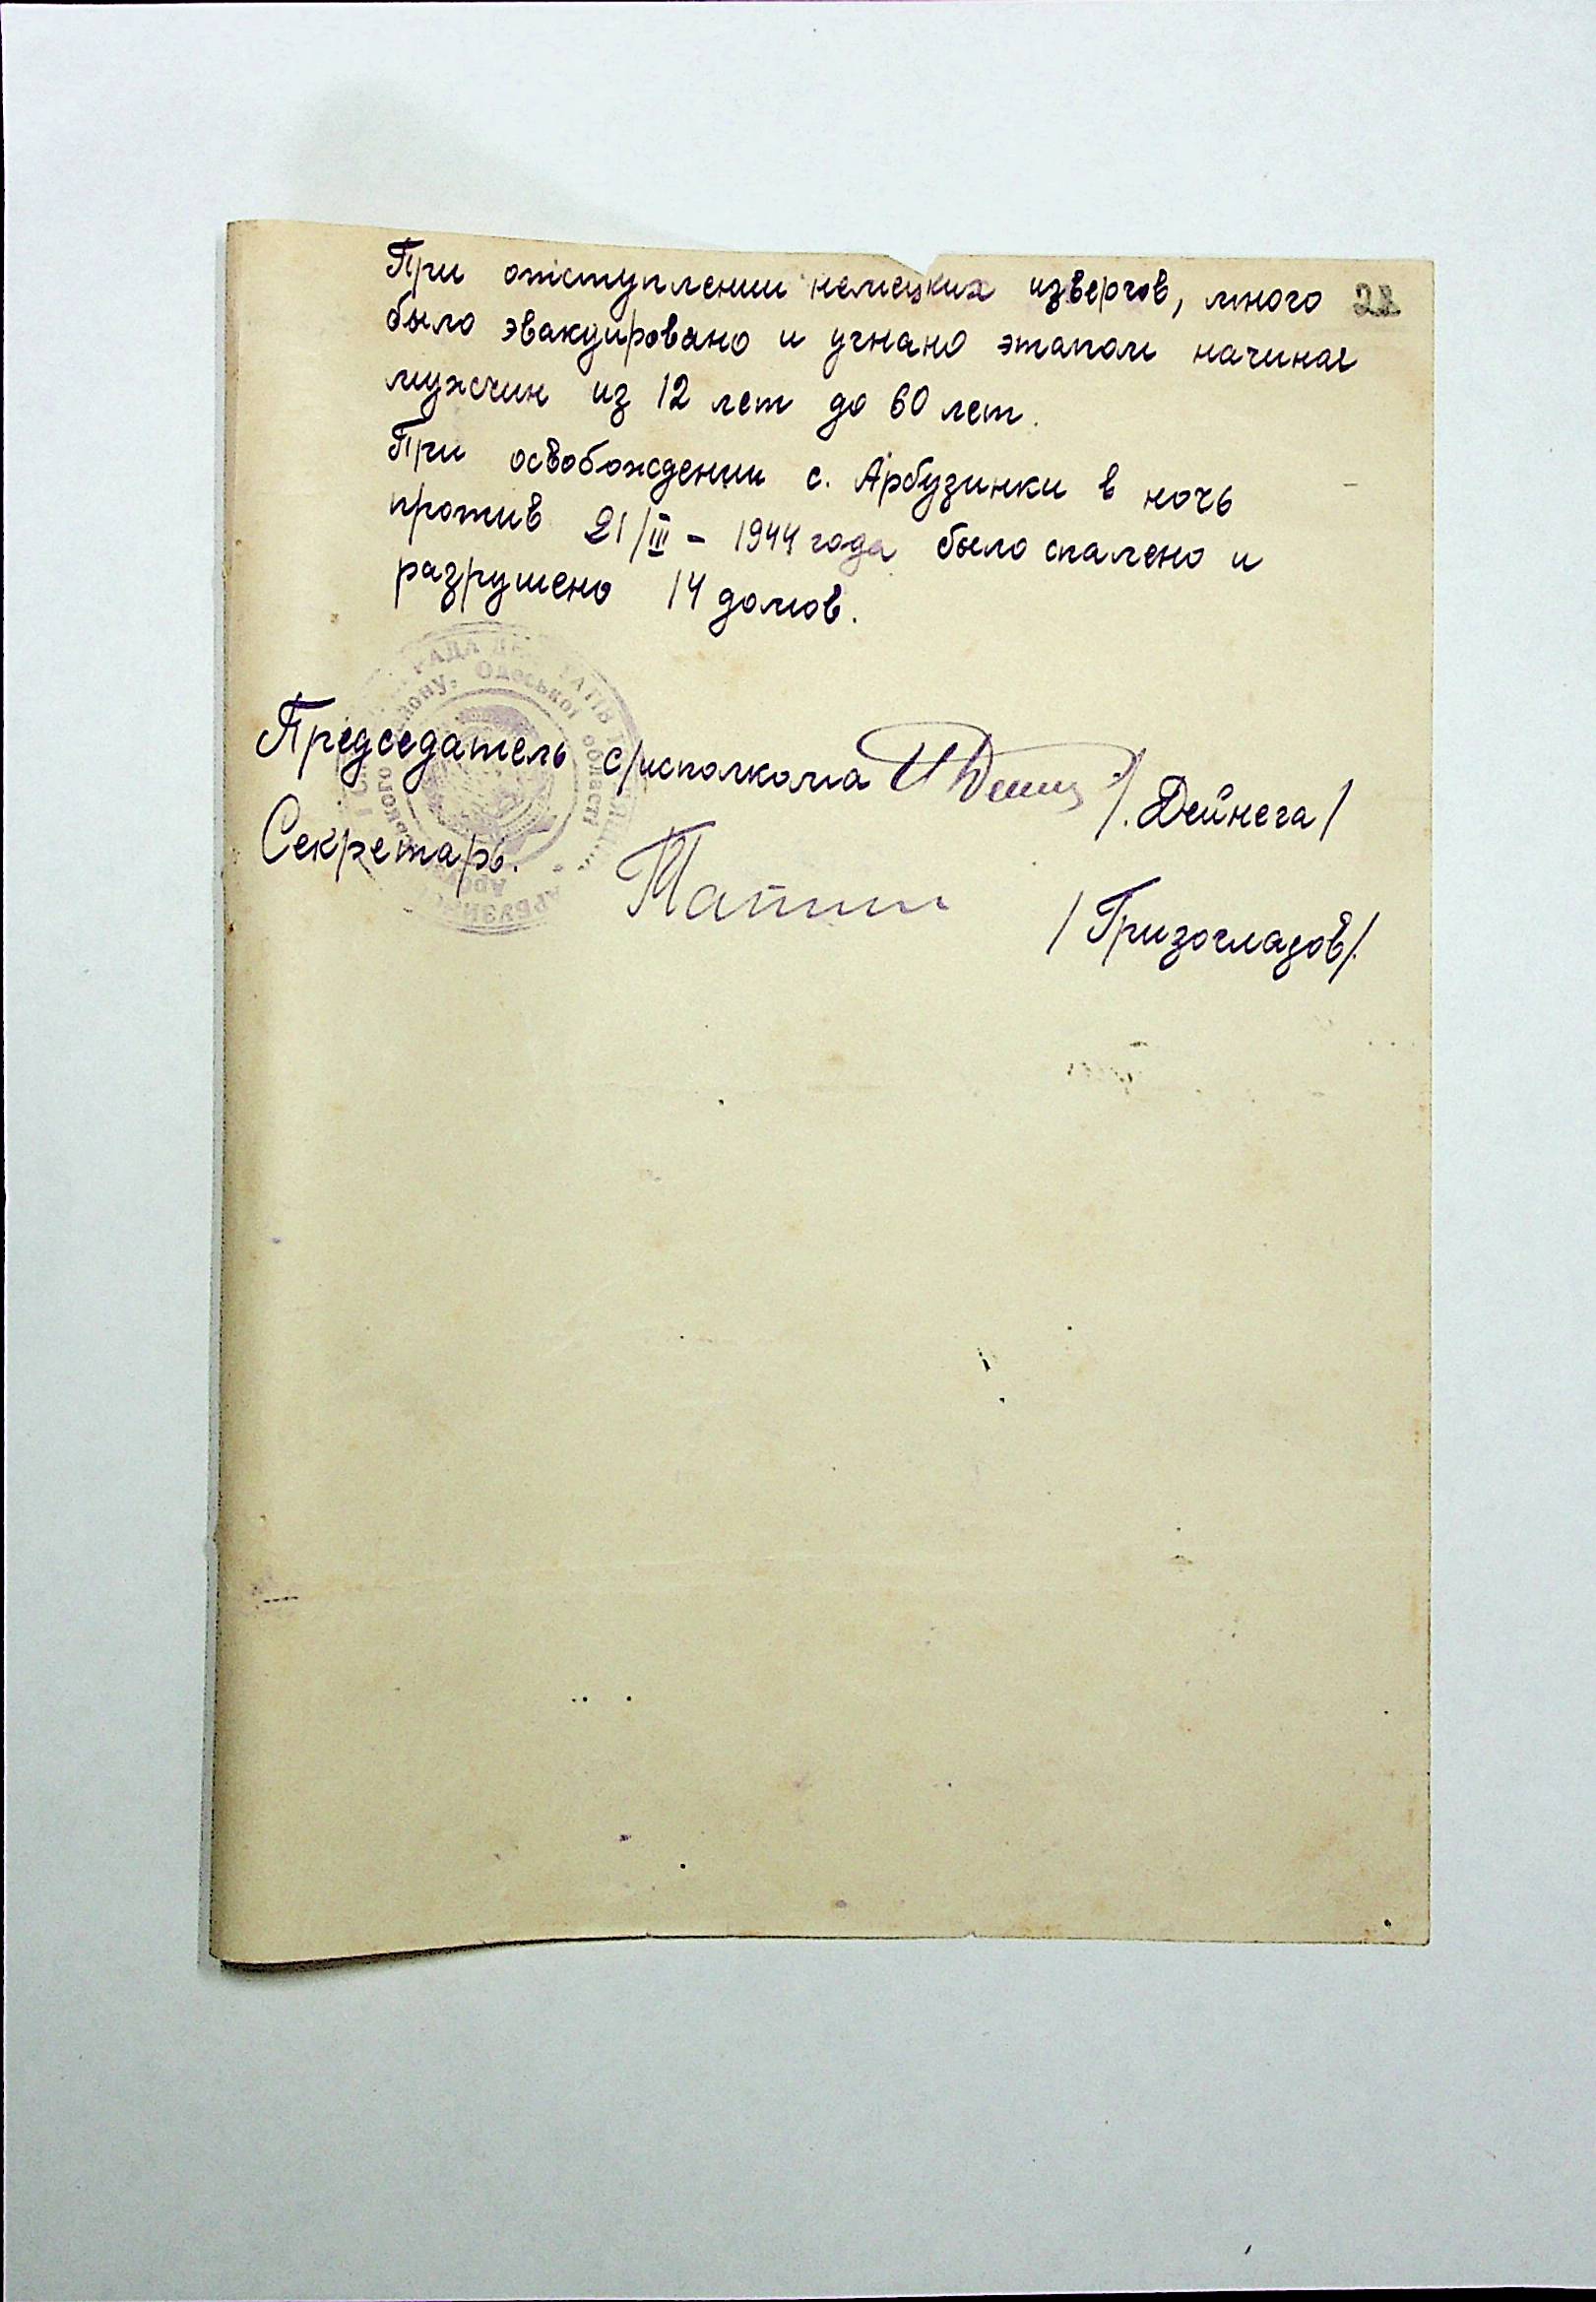 При отступлении немецких извергов, много 22
было эвакуировано и угнано этапом начиная
мужчин из 12 лет до 60 лет.
При освобождении с. Арбузинки в ночь
против 21/III - 1944 года было спалено и
разрушено 14 домов.
РАДА
району, Одеської області
Председатель с/исполкома /. Дейнега/
Секретарь.
/Гризоглазов/.